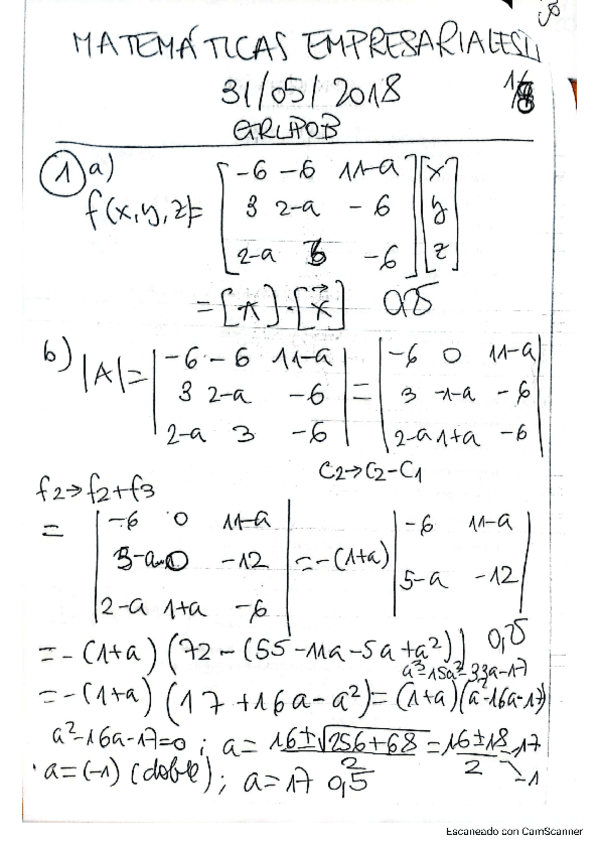 MATEMÁTICAS EMPRESARIALES II
31/05/2018
GRUPO B
1 a)
f(x,y,z)= [-6 -6 11-a] [x]
[3 2-a -6] [y]
[2-a 3 -6] [z]
= [A]·[x⃗] 0,25
b) |A| = |-6 -6 11-a| = |-6 0 11-a|
|3 2-a -6| |3 -1-a -6|
|2-a 3 -6| |2-a 1+a -6|
C2→C2-C1
f2→f2+f3
= |-6 0 11-a| = -(1+a) |-6 11-a|
|5-a 0 -12| |5-a -12|
|2-a 1+a -6|
= -(1+a) (72-(55-11a-5a+a²)) 0,25
a³-15a²-33a-17
= -(1+a) (17+16a-a²) = (1+a)(a²-16a-17)
a²-16a-17=0; a= 16±√256+68 / 2 = 16±18 / 2 17
-1
a=(-1) (doble); a=17 0,5
Escaneado con CamScanner